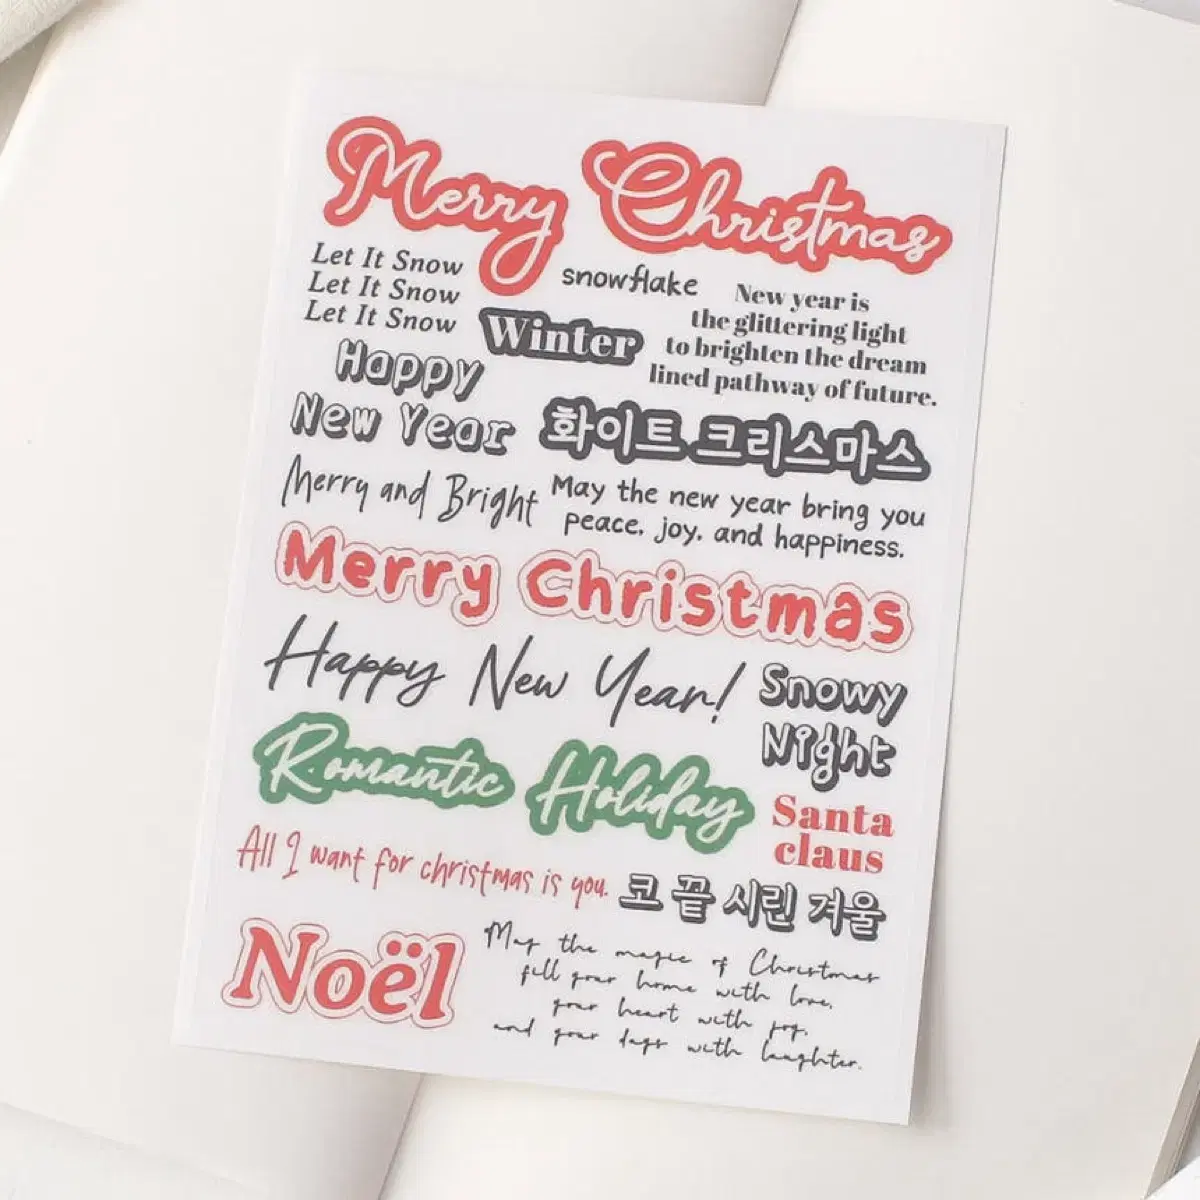 Merry Christmas
Let It Snow
Let It Snow
Let It Snow
snowflake
Winter
New year is
the glittering light
to brighten the dream
lined pathway of future.
Happy
New Year
화이트 크리스마스
Merry and Bright
May the new year bring you
peace, joy, and happiness.
Merry Christmas
Happy New Year!
Snowy
Night
Romantic Holiday
Santa
claus
All I want for christmas is you.
코 끝 시린 겨울
Noël
May the magic of Christmas
fill your home with love,
your heart with joy,
and your days with laughter.